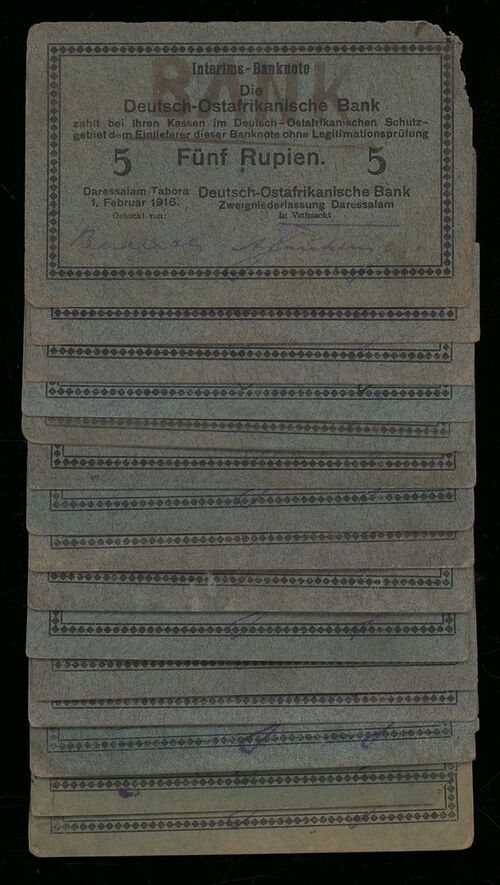 BANK
Interims-Banknote
Die
Deutsch-Ostafrikanische Bank
zahlt bei ihren Kassen im Deutsch-Ostafrikanischen Schutz-
gebiet dem Einlieferer dieser Banknote ohne Legitimationsprüfung
5 Fünf Rupien. 5
Daressalam/Tabora Deutsch-Ostafrikanische Bank
1. Februar 1916. Zweigniederlassung Daressalam
Gebucht von: In Vollmacht